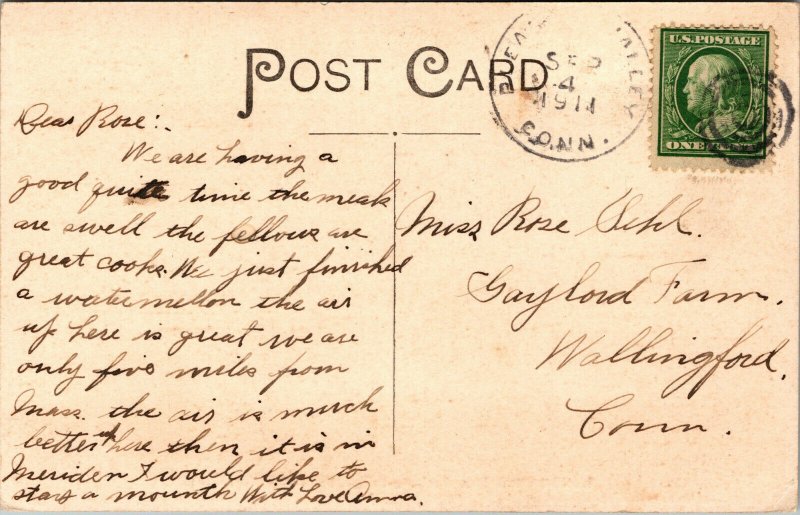 POST CARD
SEP
4
1911
CONN.
VALLEY
U.S. POSTAGE
ONE
Dear Rose:.
We are having a
good quite time the meals
are swell the fellows are
great cooks. We just finished
a watermellon the air
up here is great we are
only five miles from
Mass. the air is much
better up here then it is in
Meriden I would like to
stay a mounth With Love Anna.
Miss Rose
Gaylord Farm.
Wallingford,
Conn.